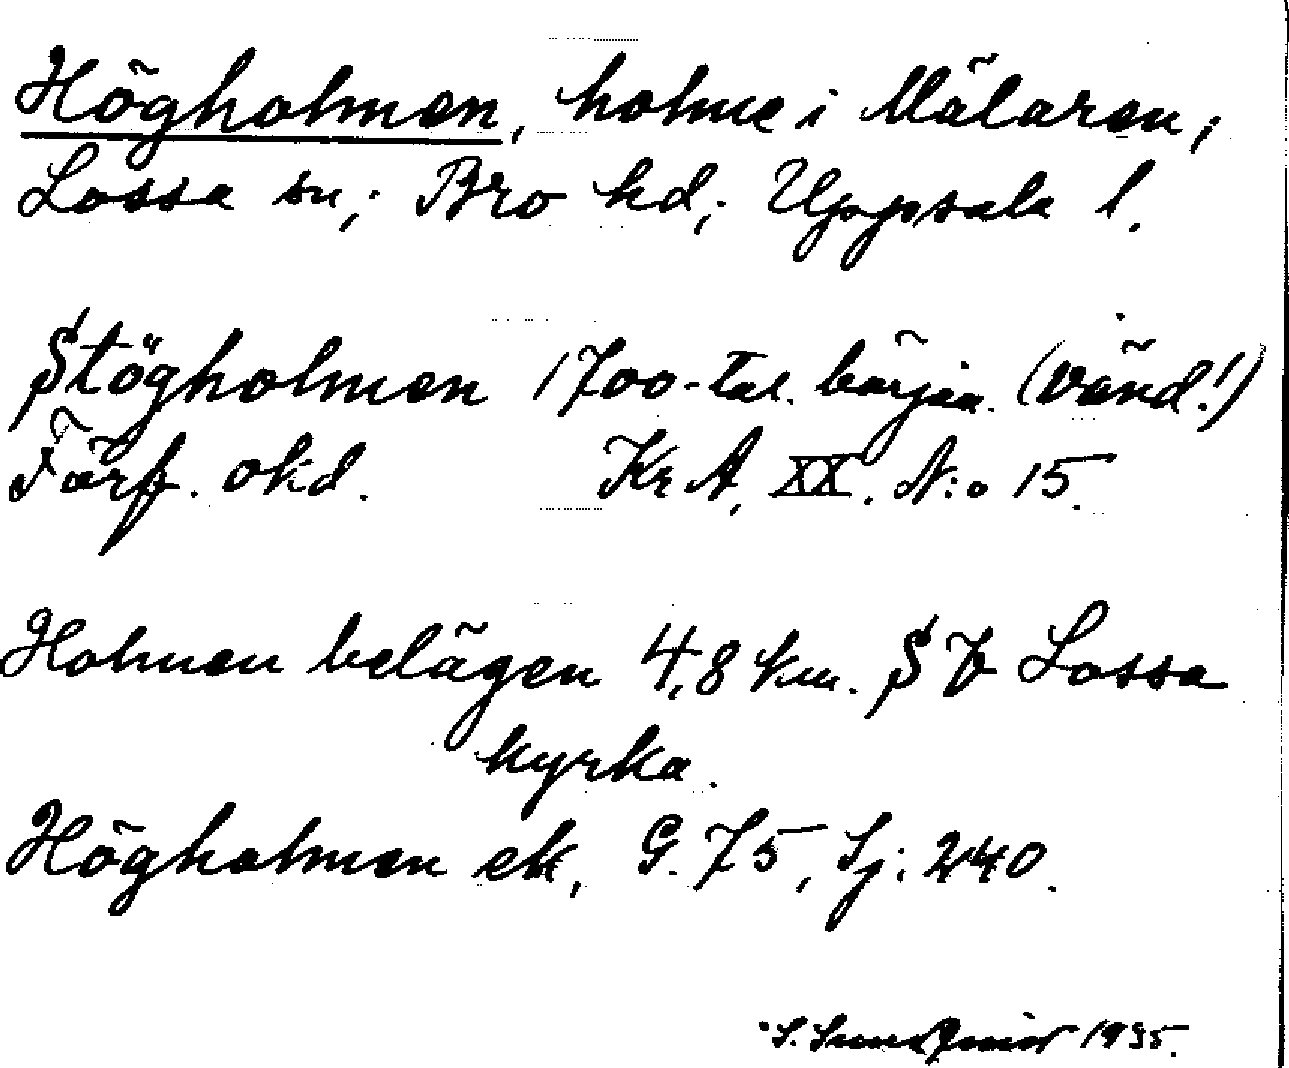 Högholmen, holme i Mälaren,
Lossa sn; Bro hd; Uppsala l.
Stögholmen 1700-tal. början. (vänd!)
Förf. okd. Kr A, XX. N:o 15.
Holmen belägen 4,8 km. S V Lossa
kyrka.
Högholmen ek, G. 75, Sj: 240.
S. 1935.